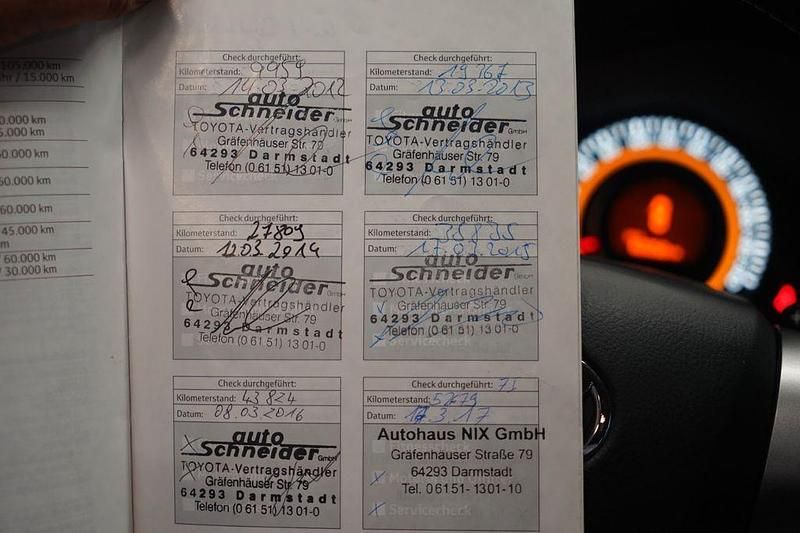 105.000 km
15.000 km
60.000 km
45.000 km
60.000 km
30.000 km
Check durchgeführt:
Kilometerstand: 9959
Datum: 14.03.2012
auto
Schneider GmbH
TOYOTA-Vertragshändler
Gräfenhäuser Str. 79
64293 Darmstadt
Telefon (0 61 51) 13 01-0
Check durchgeführt:
Kilometerstand: 19167
Datum: 13.03.2013
auto
Schneider GmbH
TOYOTA-Vertragshändler
Gräfenhäuser Str. 79
64293 Darmstadt
Telefon (0 61 51) 13 01-0
Check durchgeführt:
Kilometerstand: 27809
Datum: 12.03.2014
auto
Schneider GmbH
TOYOTA-Vertragshändler
Gräfenhäuser Str. 79
64293 Darmstadt
Telefon (0 61 51) 13 01-0
Check durchgeführt:
Kilometerstand: 35835
Datum: 17.03.2015
auto
Schneider GmbH
TOYOTA-Vertragshändler
Gräfenhäuser Str. 79
64293 Darmstadt
Telefon (0 61 51) 13 01-0
Servicecheck
Check durchgeführt:
Kilometerstand: 43824
Datum: 08.03.2016
auto
Schneider GmbH
TOYOTA-Vertragshändler
Gräfenhäuser Str. 79
64293 Darmstadt
Telefon (0 61 51) 13 01-0
Check durchgeführt:
Kilometerstand:
Datum: 3.17
Autohaus NIX GmbH
Gräfenhäuser Straße 79
64293 Darmstadt
Tel. 0 61 51- 1301- 10
Servicecheck